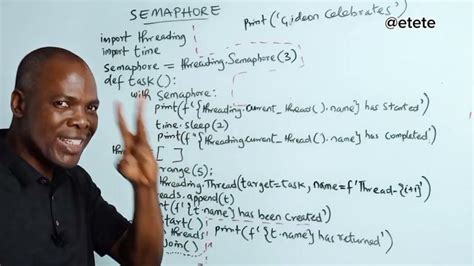 SEMAPHORE
print('Gideon Celebrates')
@etete
import threading
import time
semaphore = threading.Semaphore(3)
def task():
with semaphore:
print(f'{threading.current_thread().name} has started')
time.sleep(2)
print(f'{threading.current_thread().name} has completed')
[ ]
range(5):
threading.Thread(target=task, name=f'Thread-{i+1}')
reads.append(t)
int(f'{t.name} has been created')
start()
join()
print(f'{t.name} has returned')